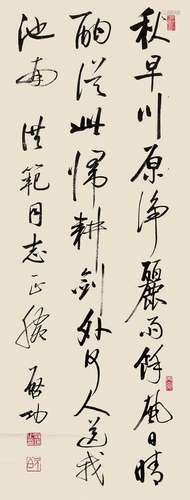 秋早川原淨麗雨餘風日晴
酣從此歸耕劍外何人送我
池南 洪範同志正腕 啟功